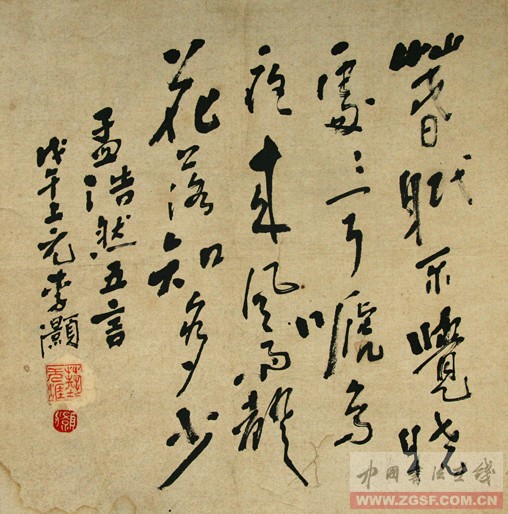 春眠不覺曉
處々聞嗁鳥
夜来風雨聲
花落知多少
孟浩然五言
戊午上元李灝
中国书法在线
WWW.ZGSF.COM.CN